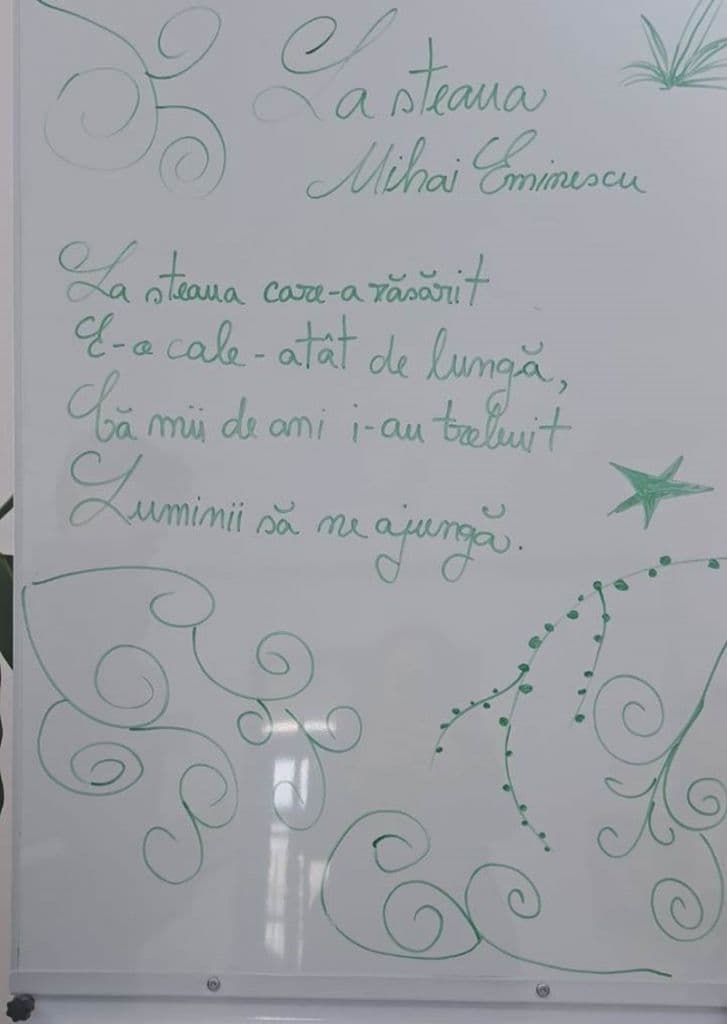 La steaua
Mihai Eminescu
La steaua care-a răsărit
E-o cale-atât de lungă,
Că mii de ani i-au trebuit
Luminii să ne ajungă.